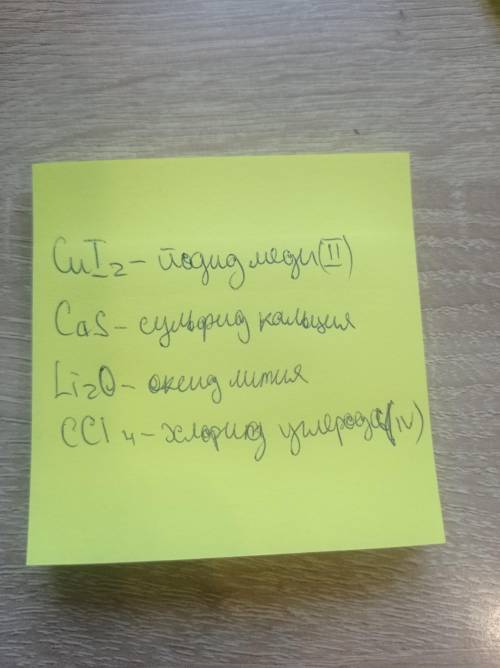 CuI2 - йодид меди(II)
CaS - сульфид кальция
Li2O - оксид лития
CCl4 - хлорид углерода(IV)